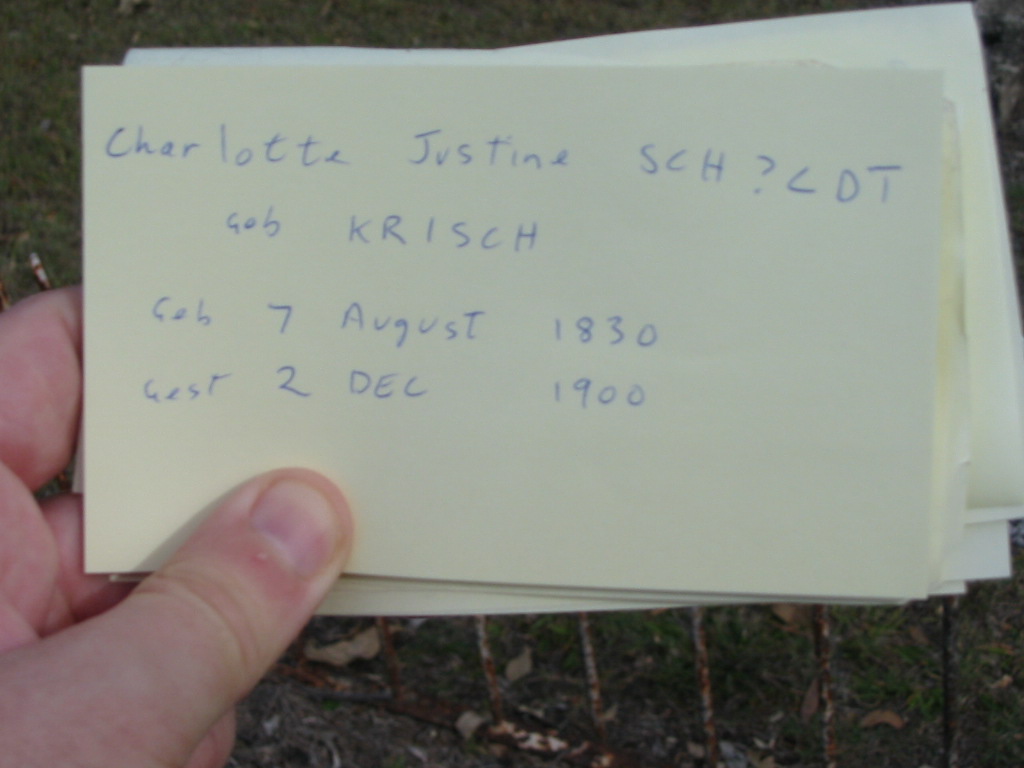 Charlotte Justine SCH?CDT
Geb KRISCH
Geb 7 August 1830
Gest 2 DEC 1900